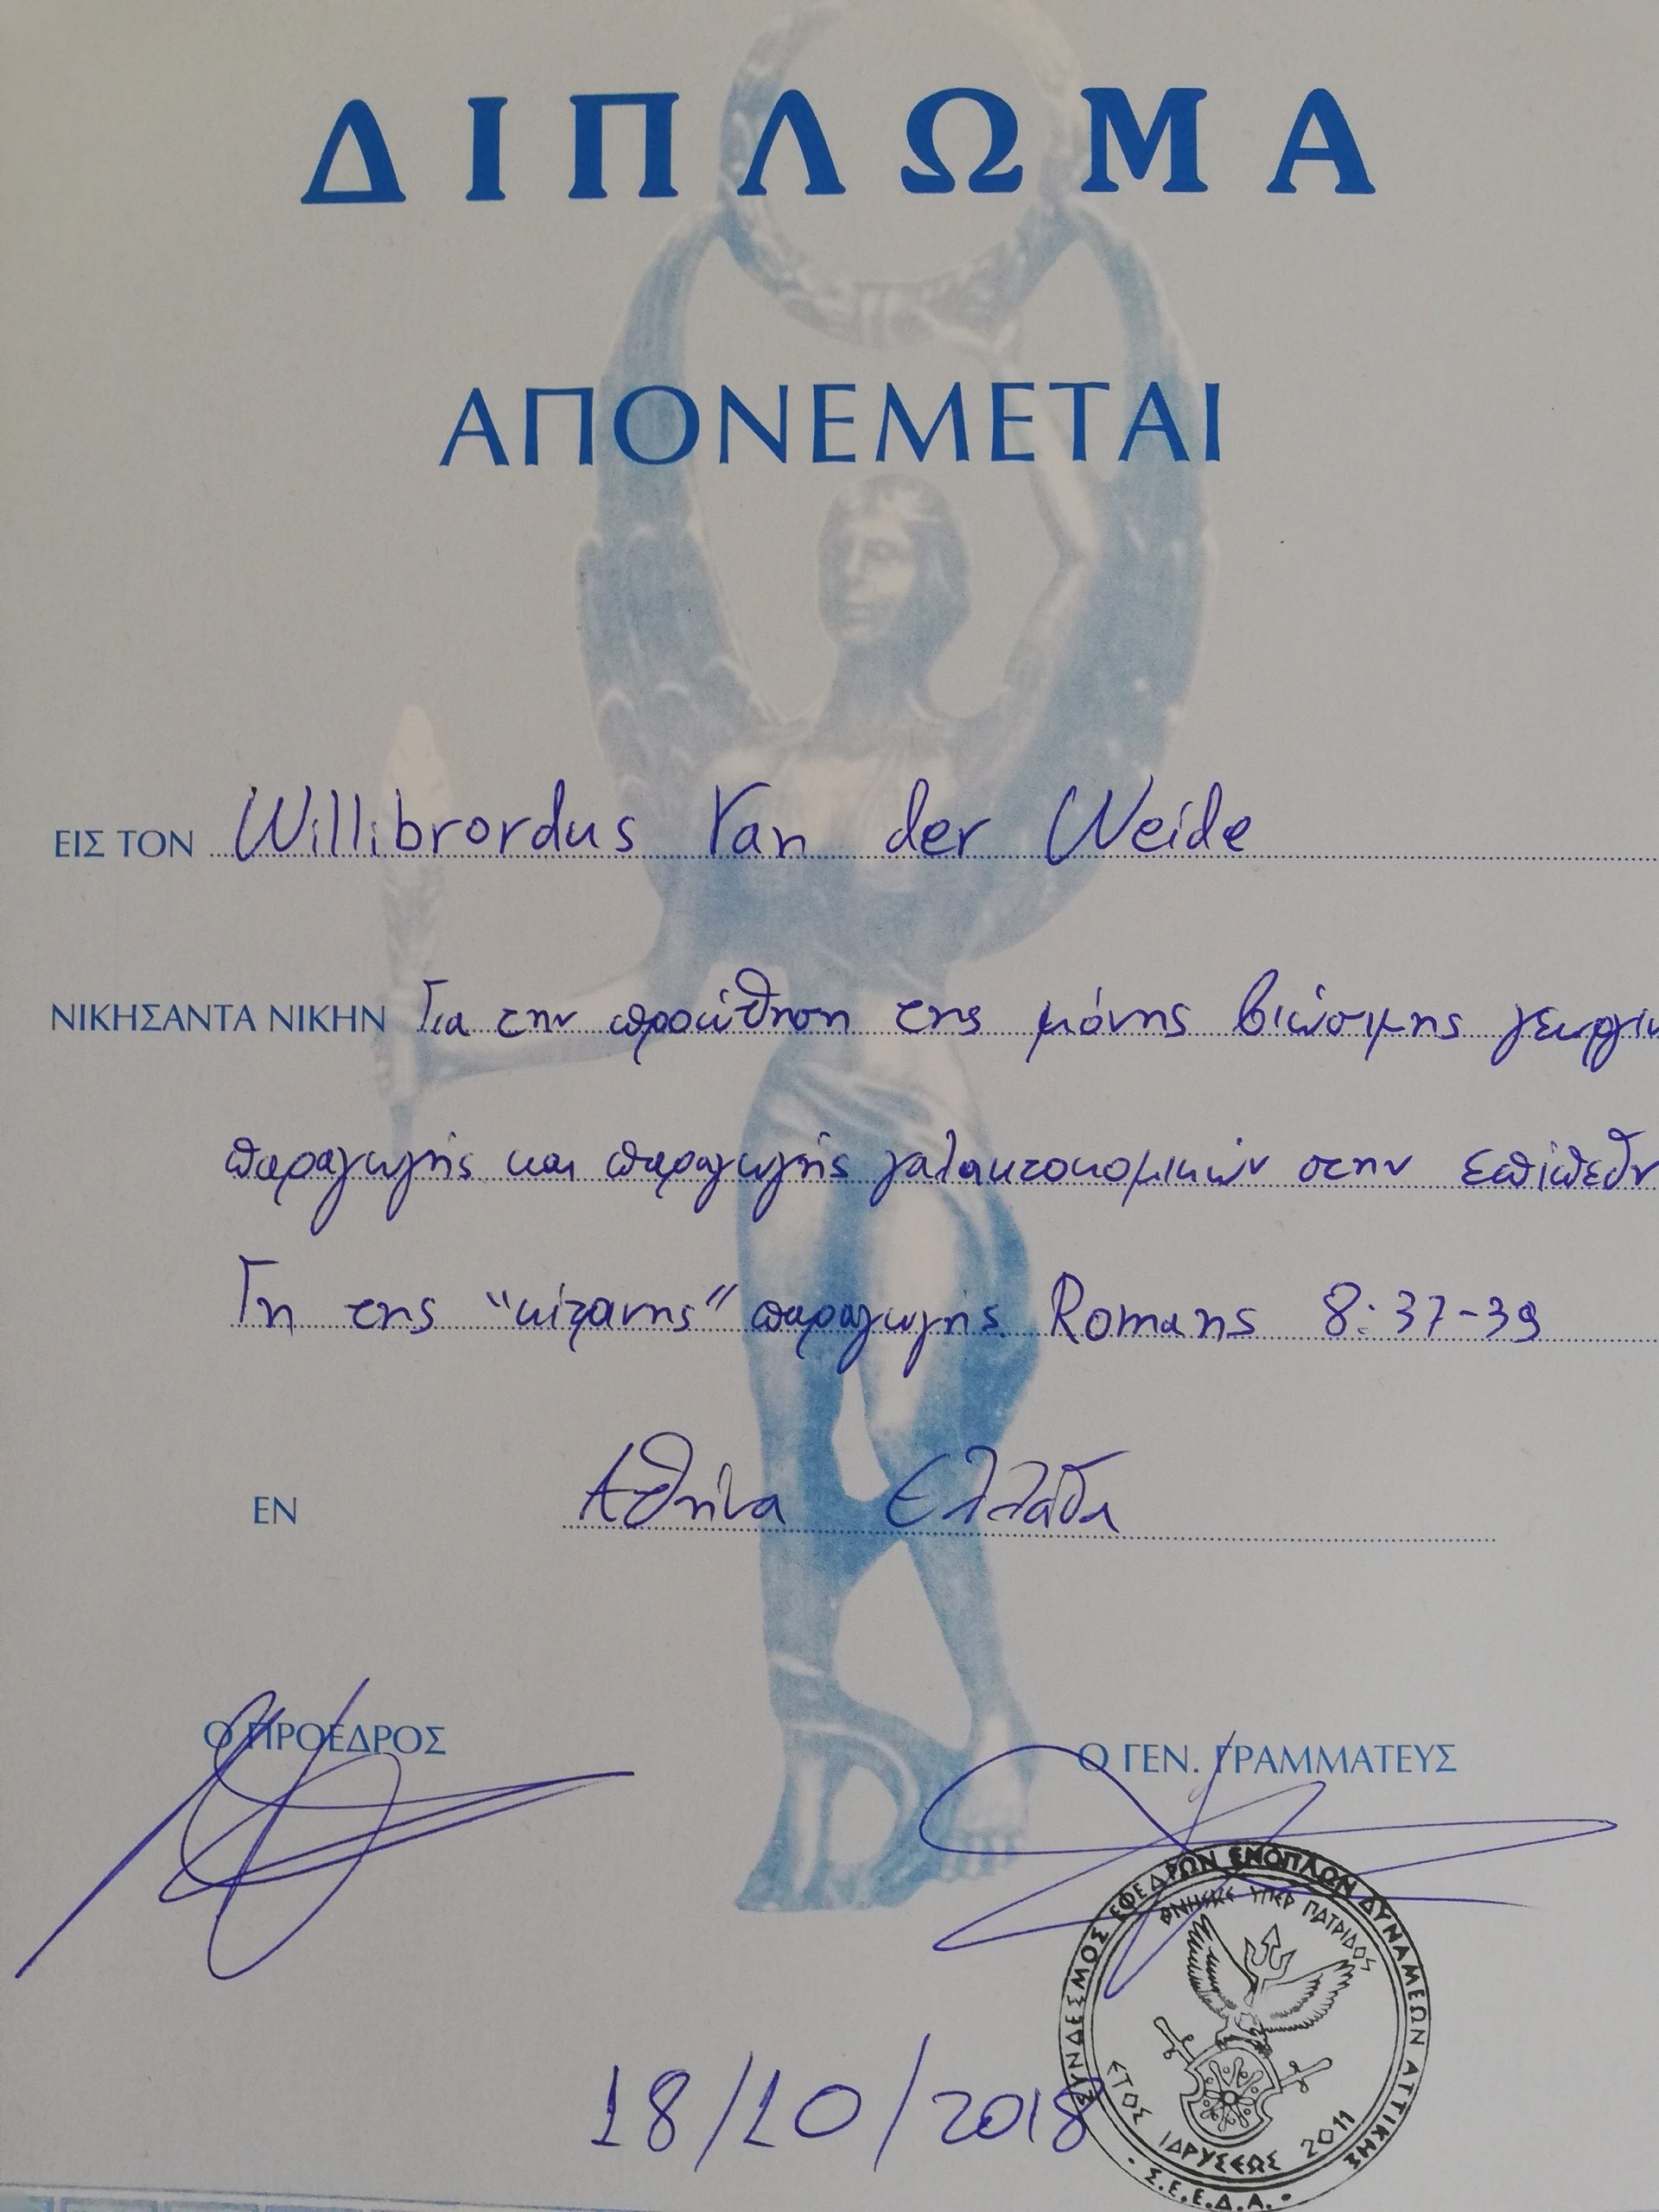 ΔΙΠΛΩΜΑ
ΑΠΟΝΕΜΕΤΑΙ
ΕΙΣ ΤΟΝ Willibrordus Van der Weide
ΝΙΚΗΣΑΝΤΑ ΝΙΚΗΝ Για την προώθηση της μόνης βιώσιμης γεωργικ
παραγωγής και παραγωγής γαλακτοκομικών στην επίπεδη
Γη της "κίτρινης" παραγωγής Romans 8:37-39
ΕΝ Αθήνα Ελλάδα
Ο ΠΡΟΕΔΡΟΣ
Ο ΓΕΝ. ΓΡΑΜΜΑΤΕΥΣ
ΣΥΝΔΕΣΜΟΣ ΕΦΕΔΡΩΝ ΕΝΟΠΛΩΝ ΔΥΝΑΜΕΩΝ ΑΤΤΙΚΗΣ
ΥΠΕΡ ΠΑΤΡΙΔΟΣ
ΕΤΟΣ ΙΔΡΥΣΕΩΣ 2011
Σ.Ε.Ε.Δ.Α.
18/10/2018